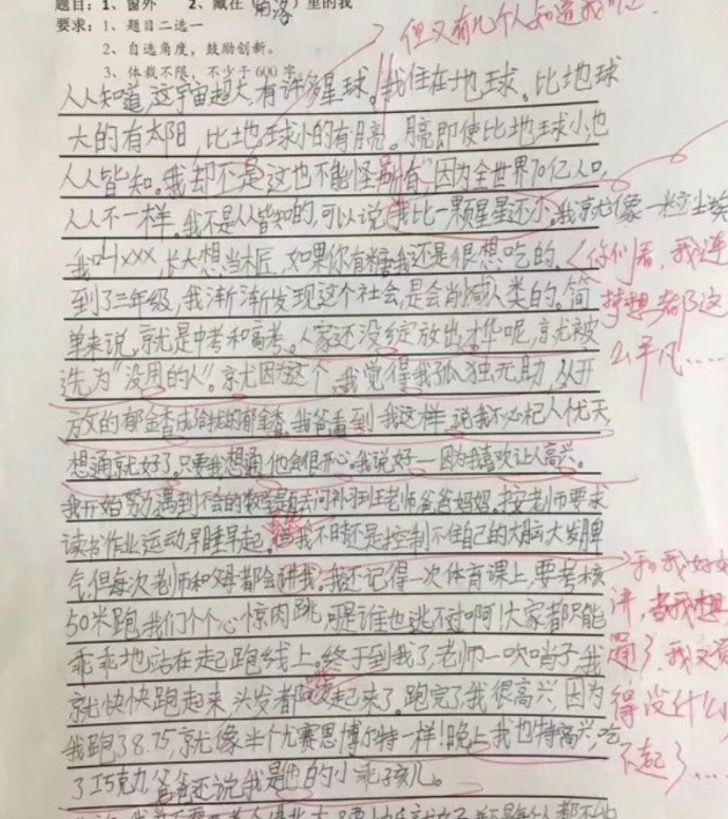 题目：1、窗外 2、藏在（角落）里的我
要求：1、题目二选一
2、自选角度，鼓励创新。
3、体裁不限，不少于600字
但又有几个人知道我呢
人人知道，这宇宙超大，有许多星球。我住在地球。比地球
大的有太阳，比地球小的有月亮。月亮即使比地球小，也
人人皆知。我却不是，这也不能怪所有，因为全世界70亿人口，
人人不一样。我不是人皆知的，可以说我比一颗星星还小。我就像一粒尘埃
我叫xxx，长大想当木匠，如果你有糖我还是很想吃的。
你们看，我连
到了三年级，我渐渐发现这个社会，是会削减人类的。简
梦想都这
单来说，就是中考和高考。人家还没绽放出才华呢，就被
么平凡……
选为“没用的人”。就因为这个，我觉得我孤独无助，从开
放的郁金香成给我的郁金香。我爸看到我这样，说我不必杞人忧天，
想通就好了。只要我想通，他会很开心。我说好——因为我喜欢让人高兴。
我开始努力，遇到不会的数学题去问补习班老师爸爸妈妈。按老师要求
读书作业运动早睡早起。我不时还是控制不住自己的大脑，大发脾
气，但每次老师和父母都会讲我。我还记得一次体育课上，要考核
和我好好
50米跑，我们个个心惊肉跳，可是谁也逃不过啊！大家都只能
讲，当我想
乖乖地站在起跑线上。终于到我了，老师一吹哨子，我
通了，我又觉
就快快跑起来，头发都飞起来了。跑完了，我很高兴，因为
得没什么
我跑了8.75，就像半个尤赛恩博尔特一样！晚上我也特高兴，吃
不起了……
了巧克力，爸爸还说我是他的小乖孩儿。